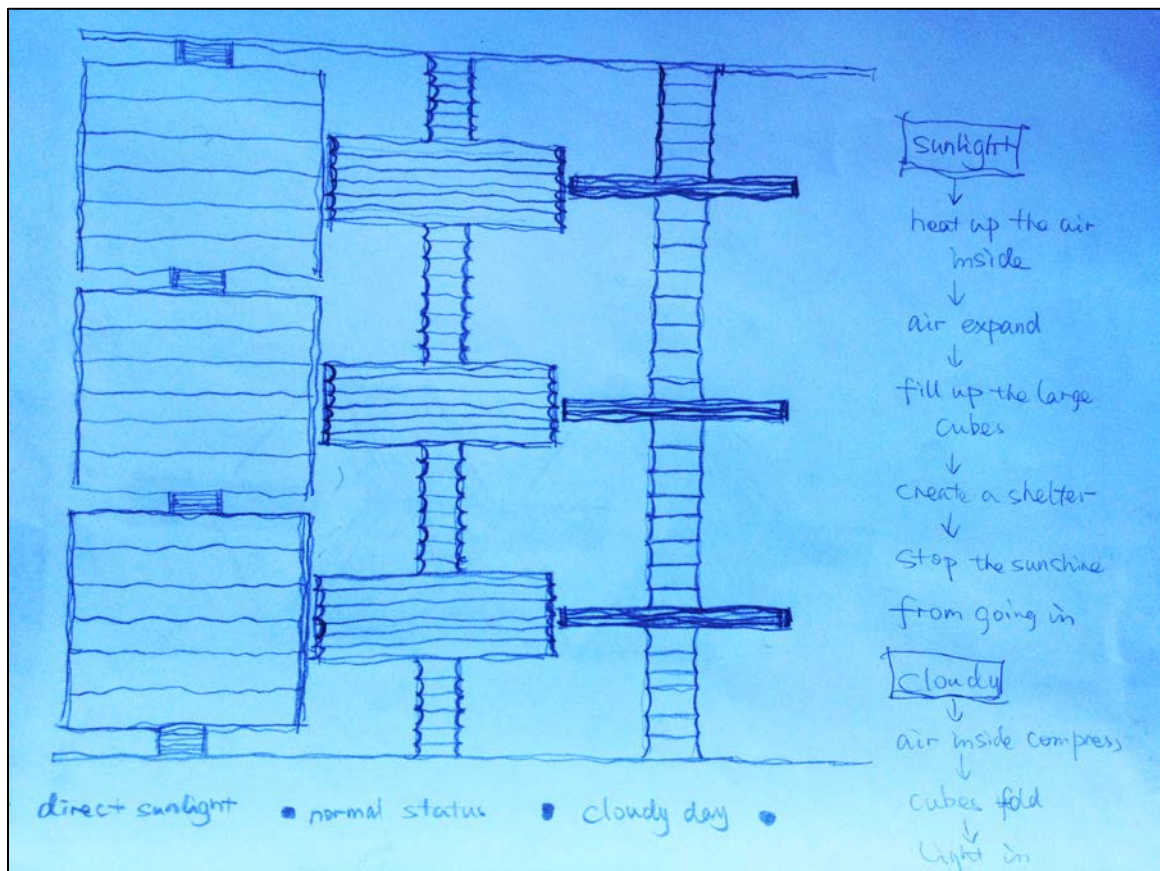 sunlight
heat up the air
inside
air expand
fill up the large
cubes
create a shelter
stop the sunshine
from going in
cloudy
air inside compress
cubes fold
light in
direct sunlight • normal status • cloudy day •